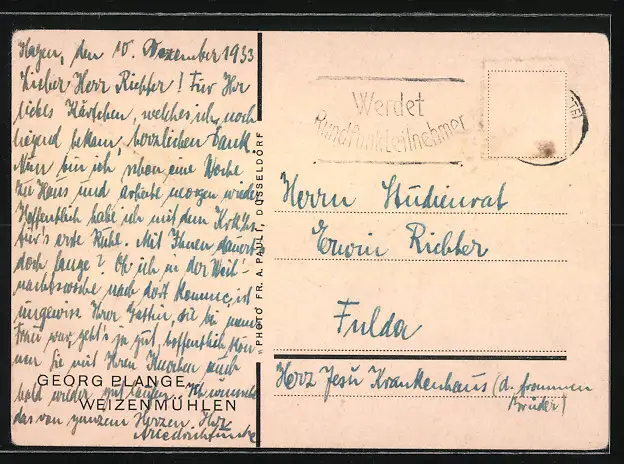 Hagen, den 10. Dezember 1933
Lieber Herr Richter! Für Ihr
liebes Kärtchen, welches ich noch
liegend bekam, herzlichen Dank.
Nun bin ich schon eine Woche
zu Haus und arbeite morgen wieder
Hoffentlich habe ich mit dem
für's erste Ruhe. Mit Ihnen dauert
doch lange? Ob ich in der Weih-
nachtswoche nach dort komme, ist
ungewiss Ihrer Gattin, die bei meiner
Frau war, geht's ja gut, hoffentlich kön-
nen Sie mit Ihren Knochen auch
bald wieder gut laufen. Ich wünsche
das von ganzem Herzen. Ihr
GEORG PLANGE
WEIZENMÜHLEN
"PHOTO FR. A. PAULI, DÜSSELDORF
Werdet
Rundfunkteilnehmer
Herrn Studienrat
Erwin Richter
Fulda
Herz Jesu Krankenhaus (d. frommen
Brüder)